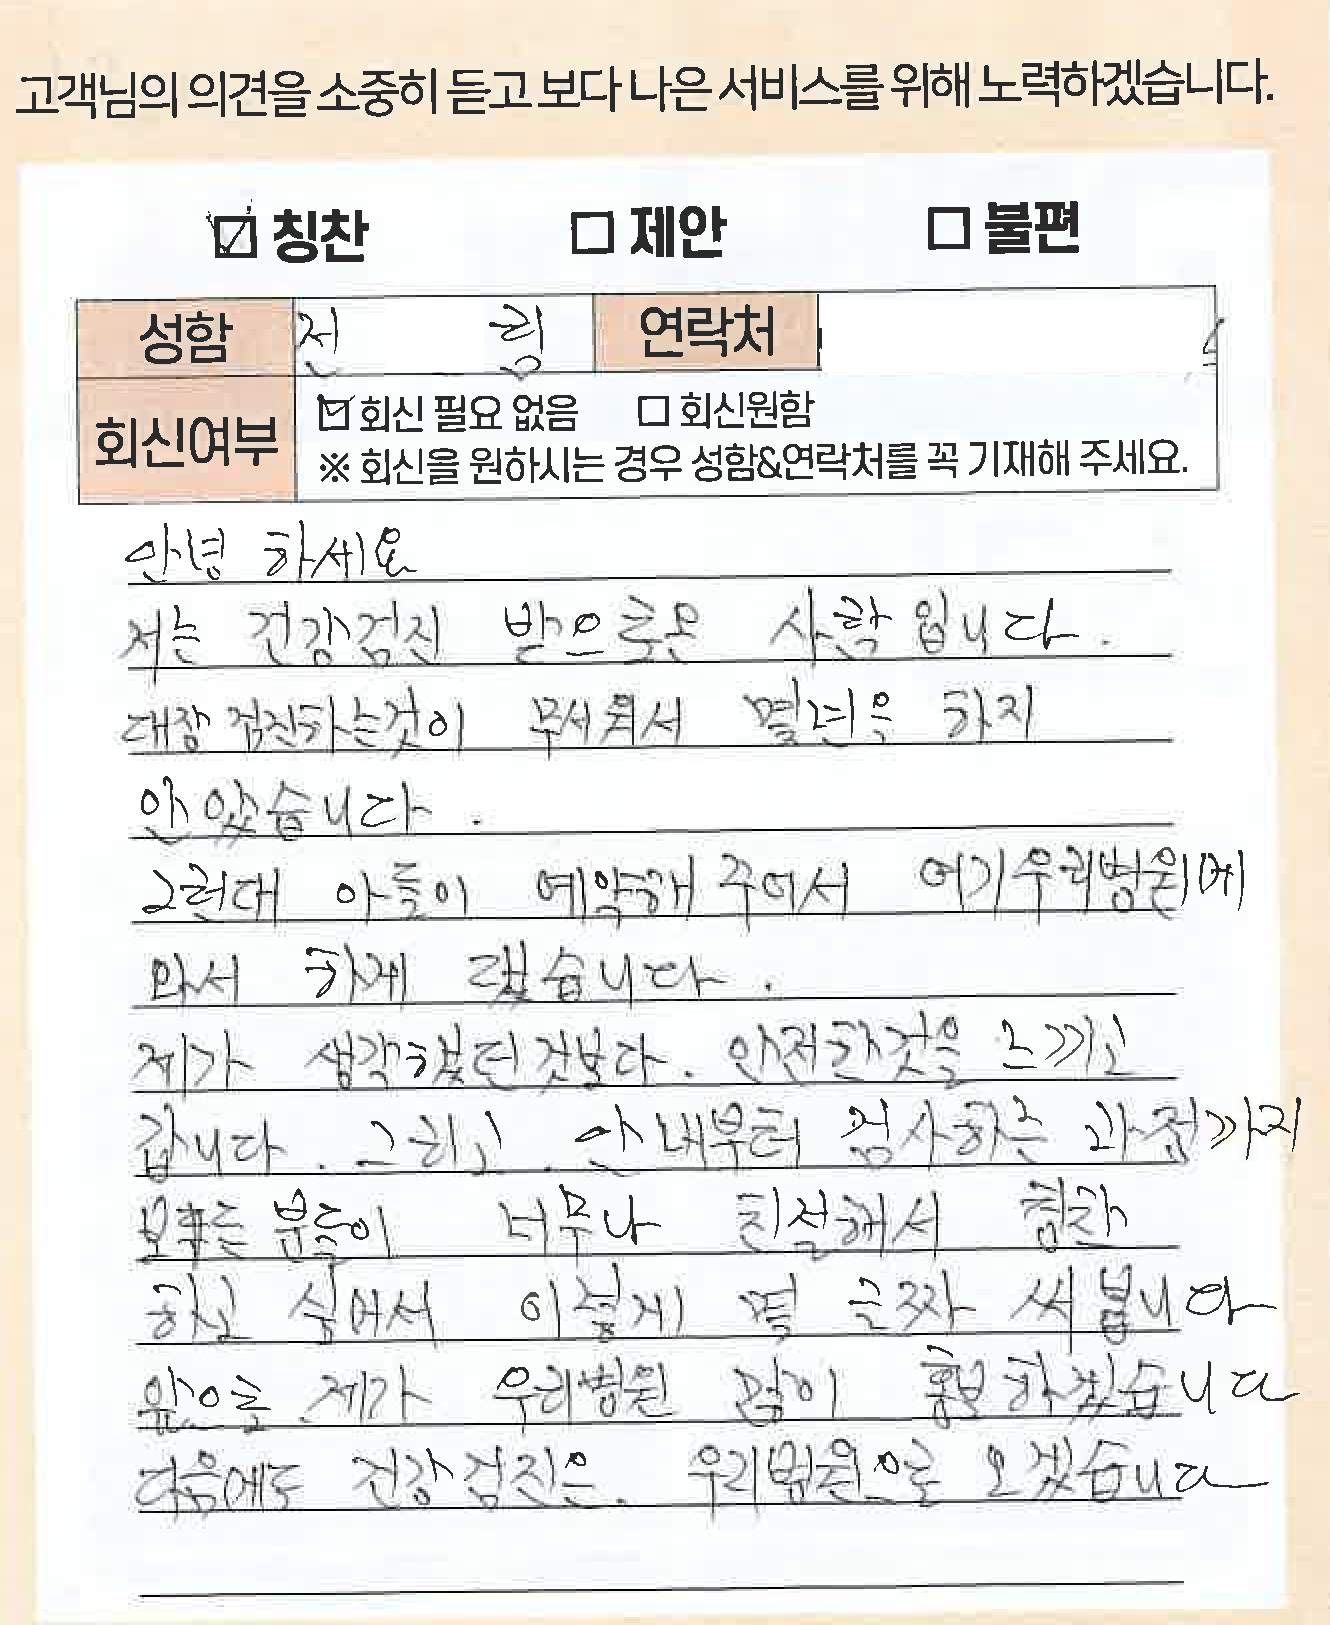 고객님의 의견을 소중히 듣고 보다 나은 서비스를 위해 노력하겠습니다.
☑ 칭찬 ☐ 제안 ☐ 불편
성함 전 림 연락처
회신여부 ☑ 회신 필요 없음 ☐ 회신원함
※ 회신을 원하시는 경우 성함&연락처를 꼭 기재해 주세요.
안녕 하세요
저는 건강검진 받으로온 사람 입니다.
대장 검진하는것이 무서워서 몇년은 하지
안 았습니다.
그런대 아들이 예약해 주어서 여기우리병원에
와서 하게 됐습니다.
제가 생각했던것보다. 안전한것을 느끼고
갑니다. 그리고. 안내부터 검사하는 과정까지
모두 분들이 너무나 친절해서 칭찬
하고 싶어서 이렇게 몇 글짜 써 봅니다
앞으로 제가 우리병원 많이 홍보하겠습니다
다음에도 건강검진은. 우리병원으로 오겠습니다